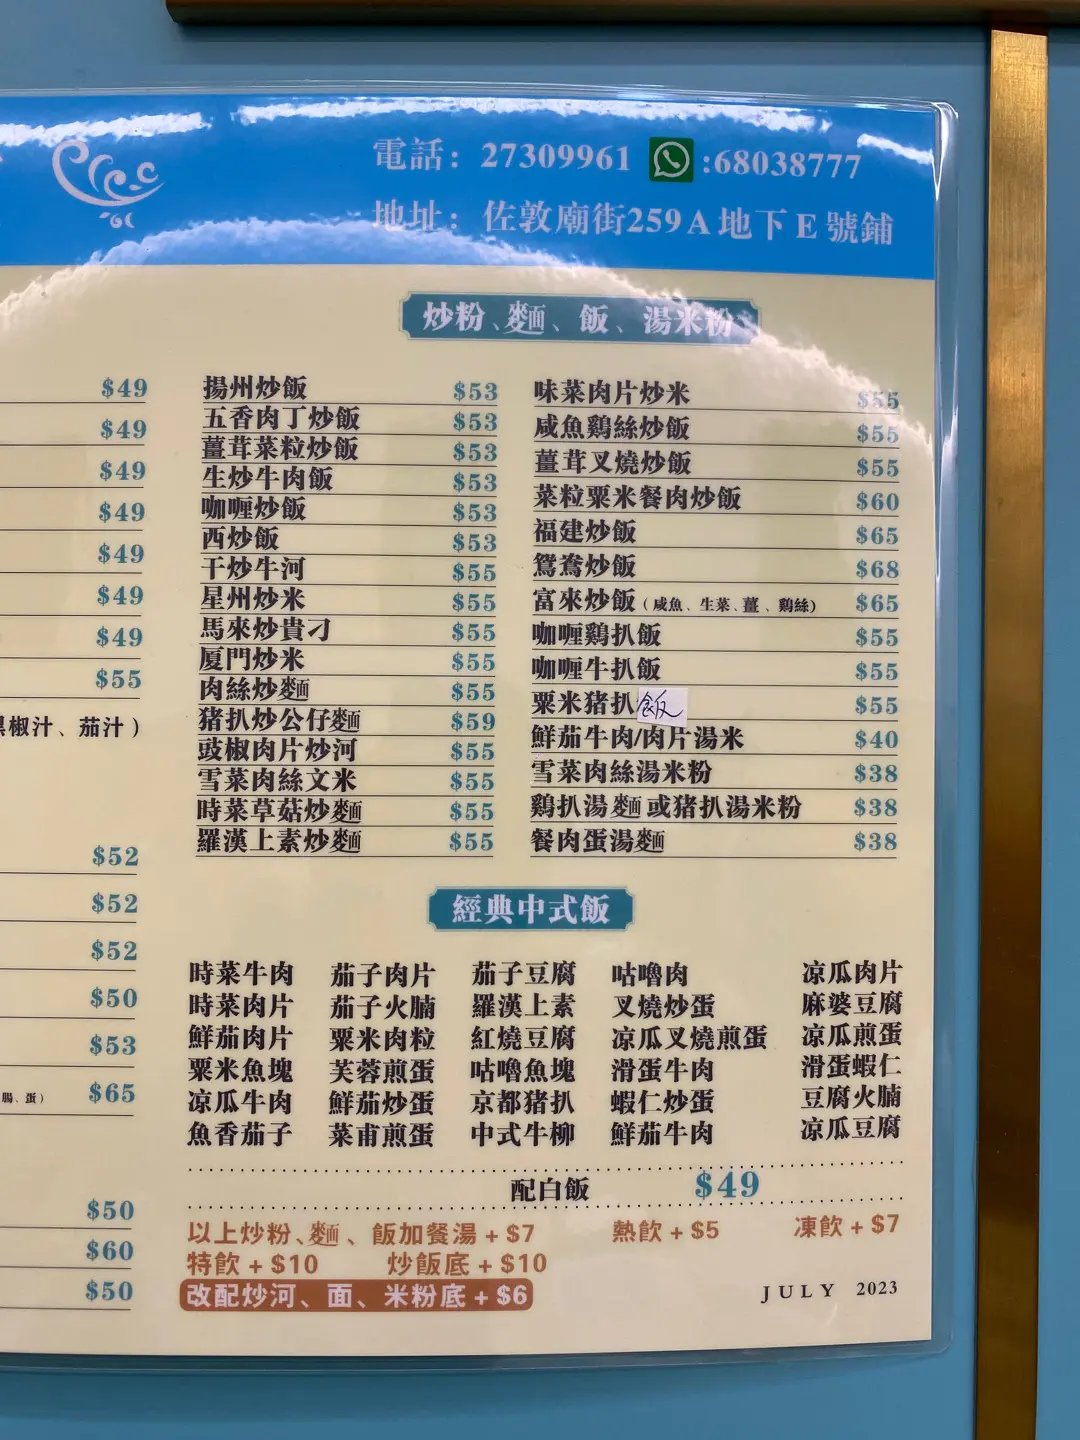 電話：27309961 :68038777
地址：佐敦廟街259A地下E號鋪
$49
$49
$49
$49
$49
$49
$49
$55
椒汁、茄汁）
$52
$52
$52
$50
$53
腸、蛋） $65
$50
$60
$50
炒粉、麵、飯、湯米粉
揚州炒飯 $53
五香肉丁炒飯 $53
薑茸菜粒炒飯 $53
生炒牛肉飯 $53
咖喱炒飯 $53
西炒飯 $53
干炒牛河 $55
星州炒米 $55
馬來炒貴刁 $55
廈門炒米 $55
肉絲炒麵 $55
豬扒炒公仔麵 $59
豉椒肉片炒河 $55
雪菜肉絲文米 $55
時菜草菇炒麵 $55
羅漢上素炒麵 $55
味菜肉片炒米 $55
咸魚鷄絲炒飯 $55
薑茸叉燒炒飯 $55
菜粒粟米餐肉炒飯 $60
福建炒飯 $65
鴛鴦炒飯 $68
富來炒飯（咸魚、生菜、薑、鷄絲） $65
咖喱鷄扒飯 $55
咖喱牛扒飯 $55
粟米猪扒飯 $55
鮮茄牛肉/肉片湯米 $40
雪菜肉絲湯米粉 $38
鷄扒湯麵或猪扒湯米粉 $38
餐肉蛋湯麵 $38
經典中式飯
時菜牛肉 茄子肉片 茄子豆腐 咕嚕肉 凉瓜肉片
時菜肉片 茄子火腩 羅漢上素 叉燒炒蛋 麻婆豆腐
鮮茄肉片 粟米肉粒 紅燒豆腐 凉瓜叉燒煎蛋 凉瓜煎蛋
粟米魚塊 芙蓉煎蛋 咕嚕魚塊 滑蛋牛肉 滑蛋蝦仁
凉瓜牛肉 鮮茄炒蛋 京都猪扒 蝦仁炒蛋 豆腐火腩
魚香茄子 菜甫煎蛋 中式牛柳 鮮茄牛肉 凉瓜豆腐
配白飯 $49
以上炒粉、麵、飯加餐湯+$7 熱飲+$5 凍飲+$7
特飲+$10 炒飯底+$10
改配炒河、面、米粉底+$6
JULY 2023